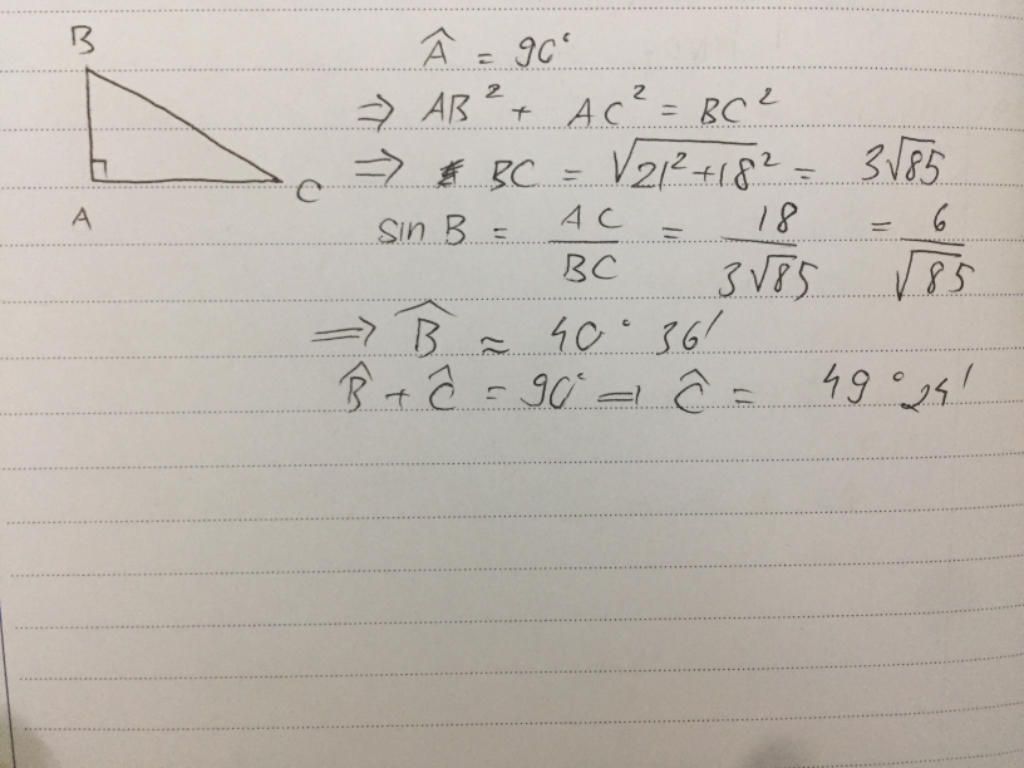 B
A
C
Â = 90°
⇒ AB² + AC² = BC²
⇒ BC = √21²+18² = 3√85
sin B = AC/BC = 18/3√85 = 6/√85
⇒ B̂ ≈ 40° 36'
B̂ + Ĉ = 90° ⇒ Ĉ = 49° 24'